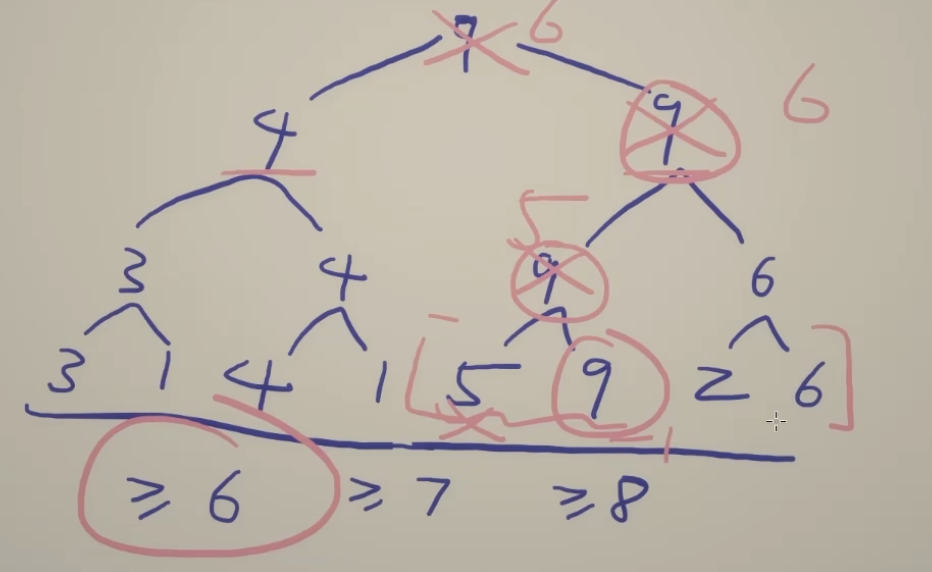 9 6
4 9 6
5
3 4 9 6
3 1 4 1 [ 5 9 2 6 ]
≥ 6 ≥ 7 ≥ 8